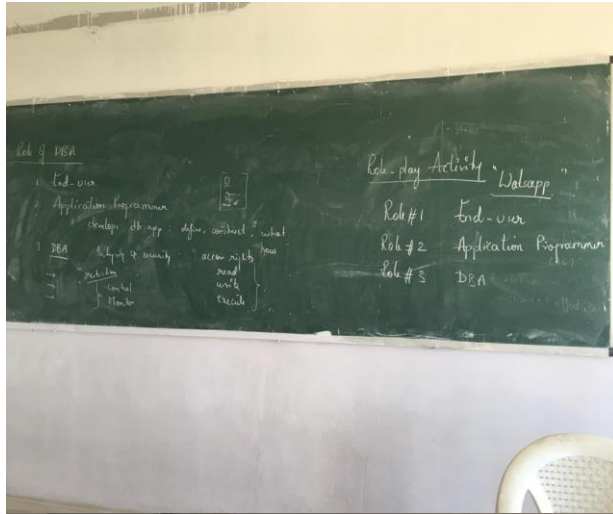 Role of DBA
1 End-user
2 Application Programmer
develops db app : define, construct, what
how
3 DBA
security : access rights
read
Control write
Monitor execute
Role-play Activity "Watsapp"
Role #1 End-user
Role #2 Application Programmer
Role #3 DBA